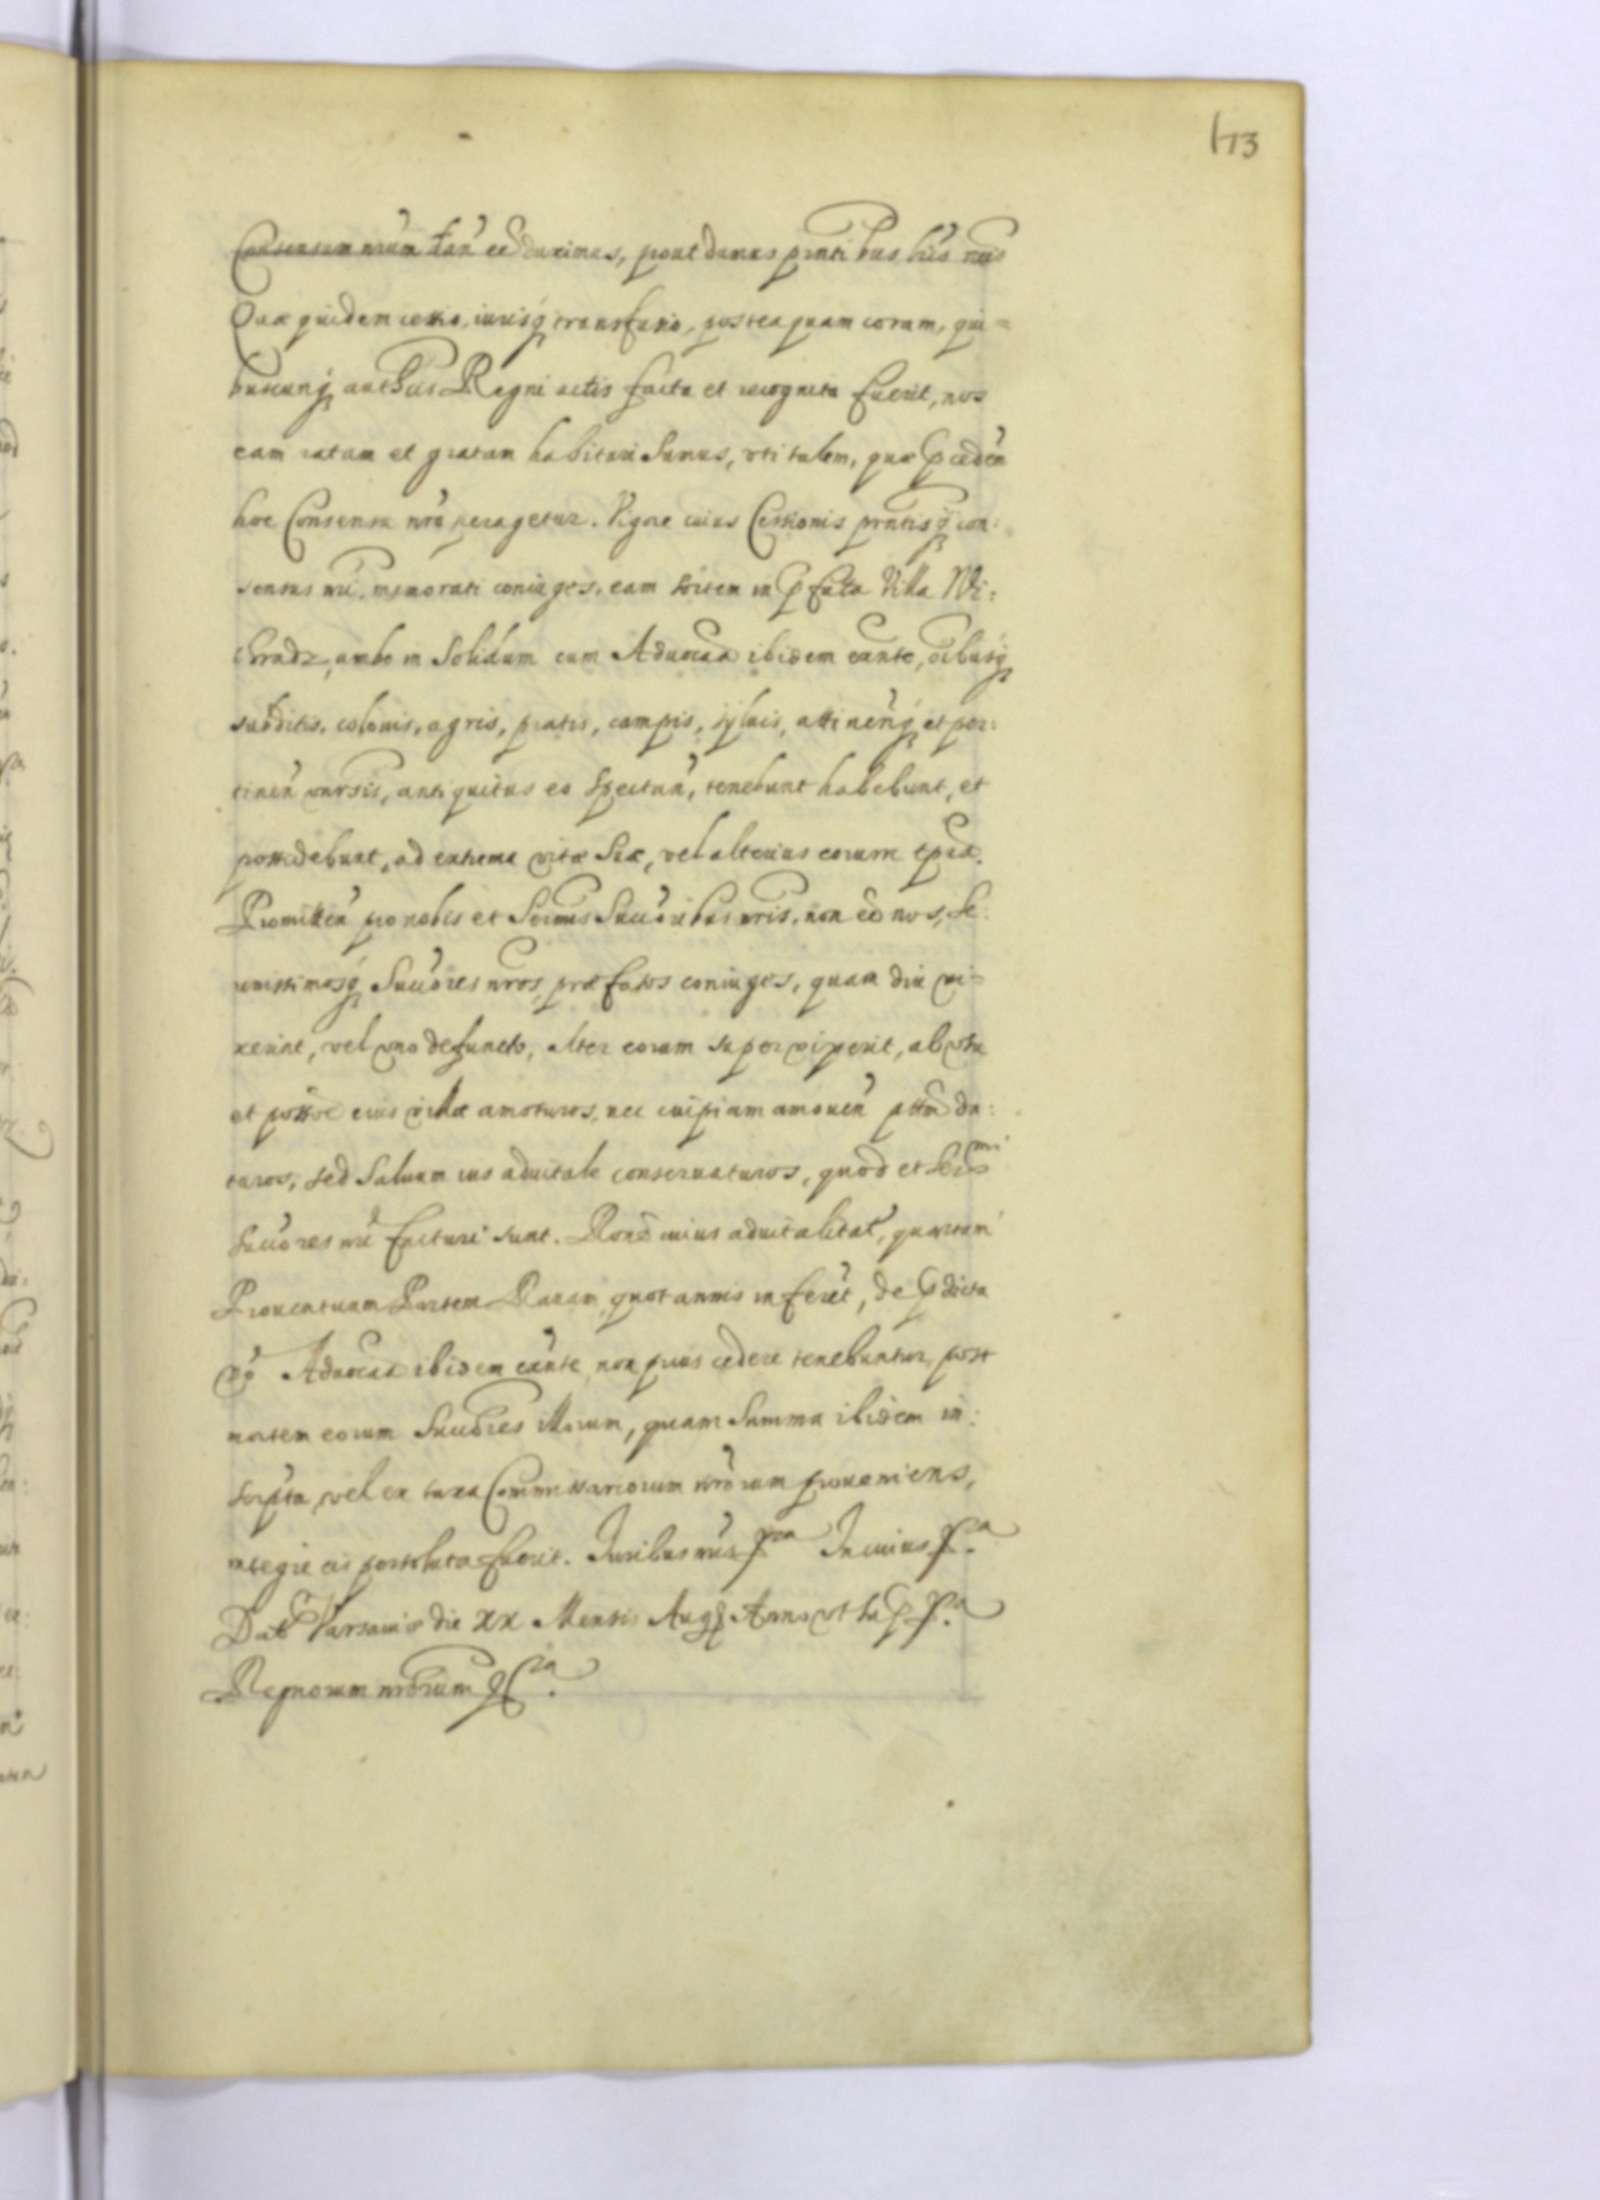 173
Consensum nrūm dañ eē duximus, prout damus pñtibus lrīs nrīs
Quæ quidem cessio, iurisq́ transfusio, posteaquam coram, qui=
buscunq́ authīcis Regni actis facta et recognita fuerit, nos
eam ratam et gratam habituri sumus, uti talem, quæ pcedeñ
hoc Consensu nrō peragetur. Vigore cuius Cessionis pñtisq́ con:
sensus nrī, memorati coniuges, eam sortem in pfata Villa Wi:
ambo in solidum cum Advocāa ibidem exñte, oībusq́
subditis, colonis, agris, pratis, campis, sylvis, attineñq́ et per:
tineñ vnrsis, antiquitus eo spectañ, tenebunt habebunt, et
possidebunt, ad extrema vitæ suæ, vel alterius eorum tpra.
Promitteñ pro nobis et Sermis Succoribus nrīs, non eē nos, Se:
renissimosq́ Succores nros, præfatos coniuges, quam diu vi=
xerint, vel uno defuncto, alter eorum supervixerit, ab usu
et possne eius villæ amoturos, nec cuipiam amoueñ ptātem da:
turos, sed saluum ius aduitale conseruaturos, quod et Sermi
Succores nrī facturi sunt. Rone cuius aduitalitat, quartam
Prouentuum Partem Rauam quotannis inferēt, de pdicta
vo Advocāa ibidem exñte non prius cedere tenebuntur, post
mortem eorum Succores illorum, quam summa ibidem in:
scripta, vel ex taxa Commissariorum nrōrum proueniens,
integre eis persoluta fuerit. Iuribus nrīs pra In cuius pa.
Dat Varsauiæ die XX Mensis Augq Anno ut sup pa.
Regnorum nrōrum &ra.